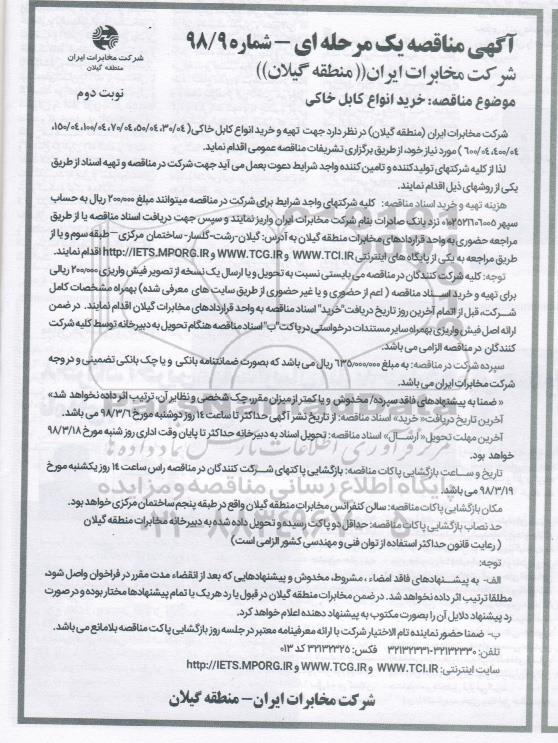 آگهی مناقصه یک مرحله ای - شماره ۹۸/۹
شرکت مخابرات ایران((منطقه گیلان))
موضوع مناقصه: خرید انواع کابل خاکی
شرکت مخابرات ایران
منطقه گیلان
نوبت دوم
شرکت مخابرات ایران (منطقه گیلان) در نظر دارد جهت تهیه و خرید انواع کابل خاکی( ۳۰/۰۴، ۵۰/۰۴، ۷۰/۰۴، ۱۰۰/۰۴، ۱۵۰/۰۴،
۴۰۰/۰۴، ۶۰۰/۰۴ ) مورد نیاز خود، از طریق برگزاری تشریفات مناقصه عمومی اقدام نماید.
لذا از کلیه شرکتهای تولیدکننده و تامین کننده واجد شرایط دعوت بعمل می آید جهت شرکت در مناقصه و تهیه اسناد از طریق
یکی از روشهای ذیل اقدام نمایند.
هزینه تهیه و خرید اسناد مناقصه: کلیه شرکتهای واجد شرایط برای شرکت در مناقصه میتوانند مبلغ ۲۰۰/۰۰۰ ریال به حساب
سپهر ۰۱۰۲۵۲۱۱۰۶۰۰۵ نزد بانک صادرات بنام شرکت مخابرات ایران واریز نمایند و سپس جهت دریافت اسناد مناقصه یا از طریق
مراجعه حضوری به واحد قراردادهای مخابرات منطقه گیلان به آدرس: گیلان-رشت-گلسار- ساختمان مرکزی - طبقه سوم و یا از
طریق مراجعه به یکی از پایگاه های اینترنتی WWW.TCI.IR و WWW.TCG.IR و http://IETS.MPORG.IR اقدام نمایند.
توجه: کلیه شرکت کنندگان در مناقصه می بایستی نسبت به تحویل و یا ارسال یک نسخه از تصویر فیش واریزی ۲۰۰/۰۰۰ ریالی
برای تهیه و خرید اسناد مناقصه ( اعم از حضوری و یا غیر حضوری از طریق سایت های معرفی شده) بهمراه مشخصات کامل
شرکت، قبل از اتمام آخرین روز تاریخ دریافت"خرید" اسناد مناقصه به واحد قراردادهای مخابرات گیلان اقدام نمایند. در ضمن
ارائه اصل فیش واریزی بهمراه سایر مستندات درخواستی در پاکت"ب" اسناد مناقصه هنگام تحویل به دبیرخانه توسط کلیه شرکت
کنندگان در مناقصه الزامی می باشد.
سپرده شرکت در مناقصه: به مبلغ ۶۳۵/۰۰۰/۰۰۰ ریال می باشد که بصورت ضمانتنامه بانکی و یا چک بانکی تضمینی و در وجه
شرکت مخابرات ایران می باشد.
« ضمنا به پیشنهادهای فاقد سپرده/ مخدوش و یا کمتر از میزان مقرر، چک شخصی و نظایر آن، ترتیب اثر داده نخواهد شد»
آخرین تاریخ دریافت« خرید» اسناد مناقصه: از تاریخ نشر آگهی حداکثر تا ساعت ۱۴ روز دوشنبه مورخ ۹۸/۳/۶ می باشد.
آخرین مهلت تحویل« ارسال» اسناد مناقصه: تحویل اسناد به دبیرخانه حداکثر تا پایان وقت اداری روز شنبه مورخ ۹۸/۳/۱۸
خواهد بود.
تاریخ و ساعت بازگشایی پاکات مناقصه: بازگشایی پاکتهای شرکت کنندگان در مناقصه راس ساعت ۱۴ روز یکشنبه مورخ
۹۸/۳/۱۹ می باشد.
مکان بازگشایی پاکات مناقصه: سالن کنفرانس مخابرات منطقه گیلان واقع در طبقه پنجم ساختمان مرکزی خواهد بود.
حد نصاب بازگشایی پاکات مناقصه: حداقل دو پاکت رسیده و تحویل داده شده به دبیرخانه مخابرات منطقه گیلان
( رعایت قانون حداکثر استفاده از توان فنی و مهندسی کشور الزامی است)
توجه:
الف- به پیشنهادهای فاقد امضاء، مشروط، مخدوش و پیشنهادهایی که بعد از انقضاء مدت مقرر در فراخوان واصل شود،
مطلقا ترتیب اثر داده نخواهد شد. در ضمن مخابرات منطقه گیلان در قبول یا رد هر یک یا تمام پیشنهادها مختار بوده و در صورت
رد پیشنهاد دلایل آن را بصورت مکتوب به پیشنهاد دهنده اعلام خواهد کرد.
ب- ضمنا حضور نماینده تام الاختیار شرکت با ارائه معرفینامه معتبر در جلسه روز بازگشایی پاکت مناقصه بلامانع می باشد.
تلفن: ۳۲۱۳۲۳۳۰-۳۲۱۳۲۳۳۱ فکس: ۳۲۱۳۲۳۲۵ کد ۰۱۳
سایت اینترنتی: WWW.TCI.IR و WWW.TCG.IR و http://IETS.MPORG.IR
شرکت مخابرات ایران- منطقه گیلان